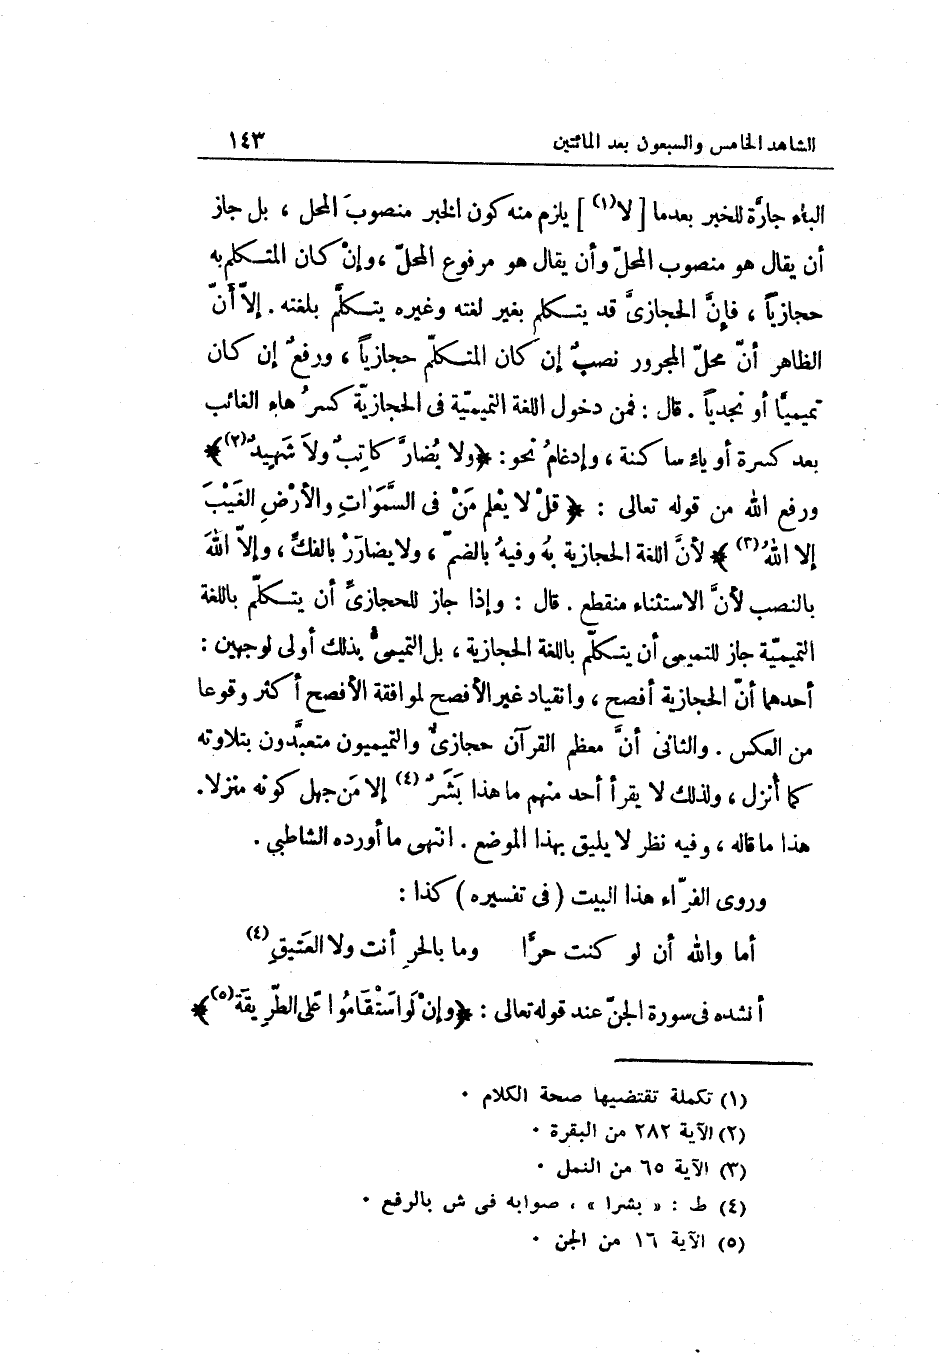 الشاهد الخامس والسبعون بعد المائتين ١٤٣
الباء جارَّة للخبر بعدما [ لا(١) ] يلزم منه كون الخبر منصوبَ المحل ، بل جاز
أن يقال هو منصوب المحلّ وأن يقال هو مرفوع المحلّ ،وإنْ كان المتكلم به
حجازياً ، فإنَّ الحجازىَّ قد يتكلم بغير لغته وغيره يتكلَّم بلغته . إلاّ أَنّ
الظاهر أنّ محلّ المجرور نصبٌ إن كان المتكلّم حجازياً ، ورفعٌ إن كان
تميميًّا أو نجدياً . قال : فمن دخول اللغة التميميّة فى الحجازيّة كسرُ هاء الغائب
بعد كسرة أو ياء ساكنة ، وإدغامُ نحو : ﴿ولا يُضارَّ كاتِبٌ ولاَ شَهِيدٌ(٢)﴾
ورفع الله من قوله تعالى : ﴿ قلْ لا يعْلم مَنْ فى السَّمَوَاتِ والأرْضِ الغَيْبَ
إلا اللهُ(٣) ﴾ لأنَّ اللغة الحجازية بهُ وفيهُ بالضمّ ، ولا يضارَرْ بالفكّ ، وإلاّ اللهَ
بالنصب لأنَّ الاستثناء منقطع . قال : وإذا جاز للحجازىّ أن يتكلّم باللغة
التميميّة جاز للتميمى أن يتكلّم باللغة الحجازية ، بل التميمىُّ بذلك أولى لوجهين :
أحدهما أنّ الحجازية أفصح ، وانقياد غير الأفصح لموافقة الأفصح أكثر وقوعا
من العكس . والثانى أنَّ معظم القرآن حجازىٌّ والتميميون متعبَّدون بتلاوته
كما أُنزل ، ولذلك لا يقرأ أحد منهم ما هذا بَشَرٌ (٤) إلا مَن جهل كونه منزلا.
هذا ما قاله ، وفيه نظر لا يليق بهذا الموضع . انتهى ما أورده الشاطبي .
وروى الفرّاء هذا البيت ( فى تفسيره ) كذا :
أما والله أن لو كنت حرًّا وما بالحرِ أنت ولا العَتيقِ(٤)
أنشده فى سورة الجنّ عند قوله تعالى : ﴿وإنْ لَواسَتْقَامُوا عَلى الطَّرِيقَة(٥)﴾
(١) تكملة تقتضيها صحة الكلام ٠
(٢) الآية ٢٨٢ من البقرة ٠
(٣) الآية ٦٥ من النمل ٠
(٤) ط : « بشرا » ، صوابه فى ش بالرفع ٠
(٥) الآية ١٦ من الجن ٠